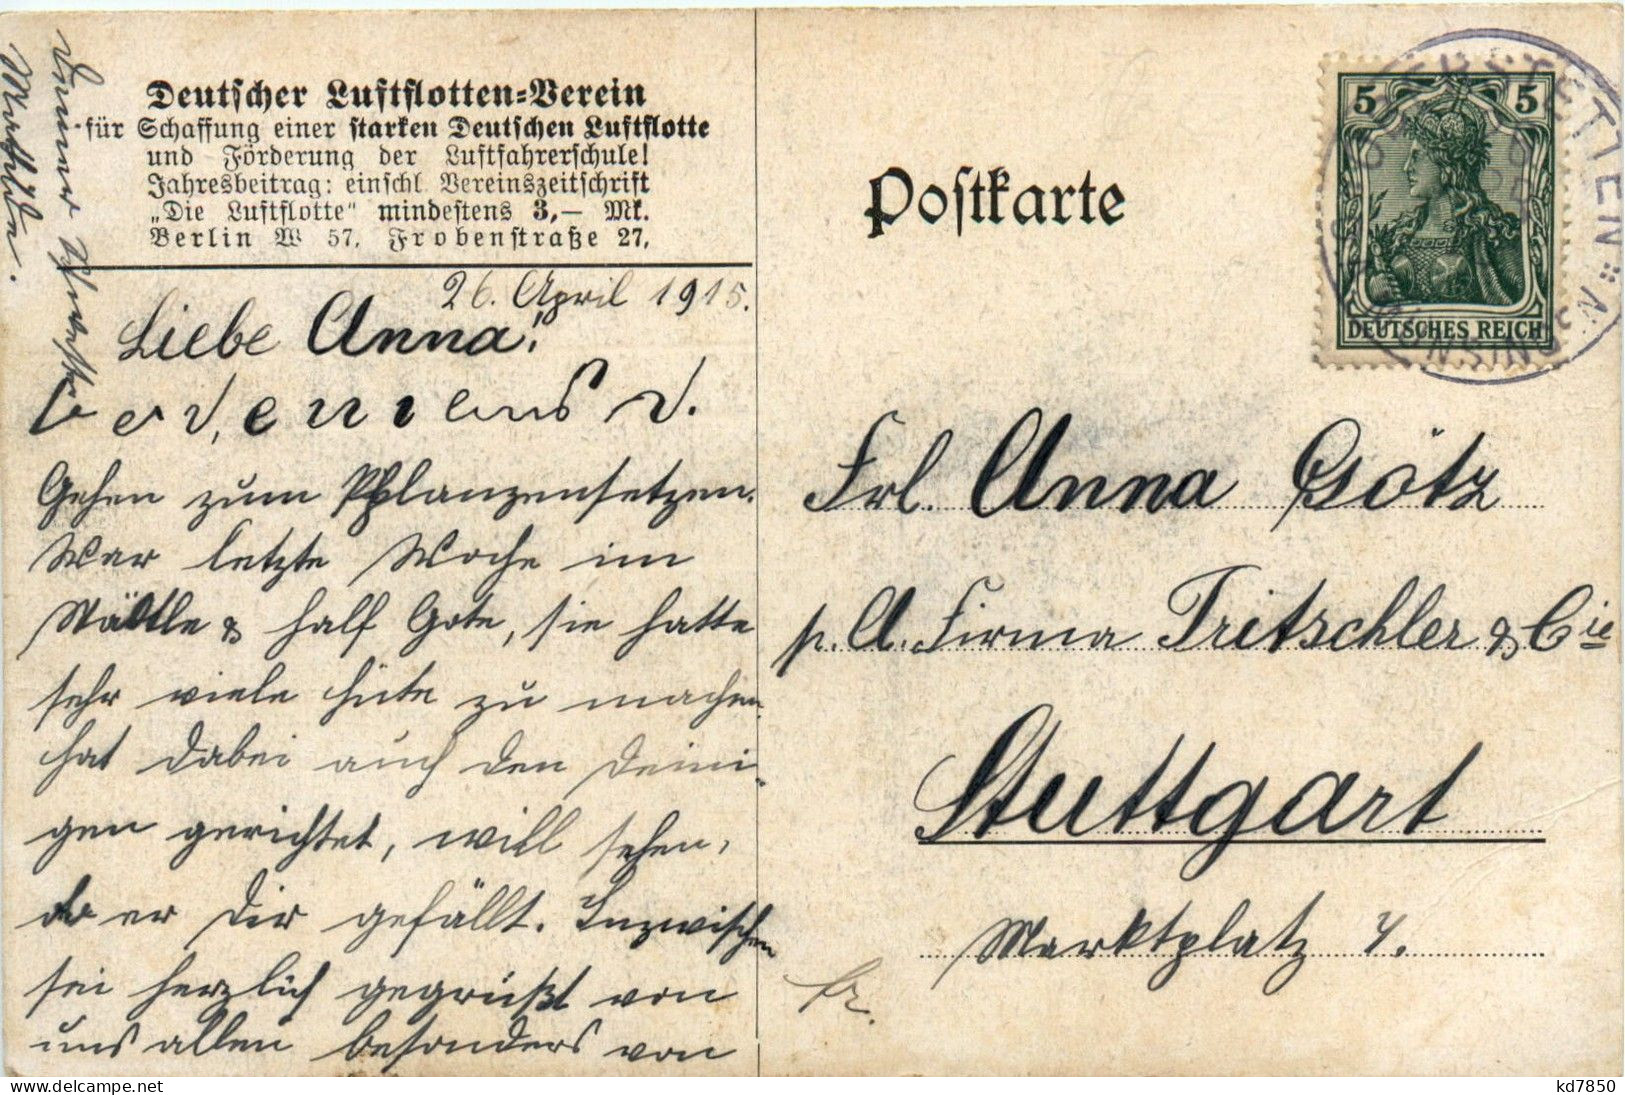 Deutscher Luftflotten-Verein
für Schaffung einer starken Deutschen Luftflotte
und Förderung der Luftfahrerschule!
Jahresbeitrag: einschl. Vereinszeitschrift
„Die Luftflotte" mindestens 3,— Mk.
Berlin W 57, Frobenstraße 27,
26. April 1915.
Liebe Anna!
Gehen zum Pflanzensetzen.
War letzte Woche im
& half Gote, sie hatte
sehr viele Hüte zu machen,
hat dabei auch den Deini-
gen gerichtet, will sehen,
ob er Dir gefällt. Inzwischen
sei herzlich gegrüßt von
uns allen besonders von
Deiner
Postkarte
5 5
DEUTSCHES REICH
Frl. Anna Götz
p. A. Firma Tritschler & Cie
Stuttgart
Marktplatz 7.
kd7850